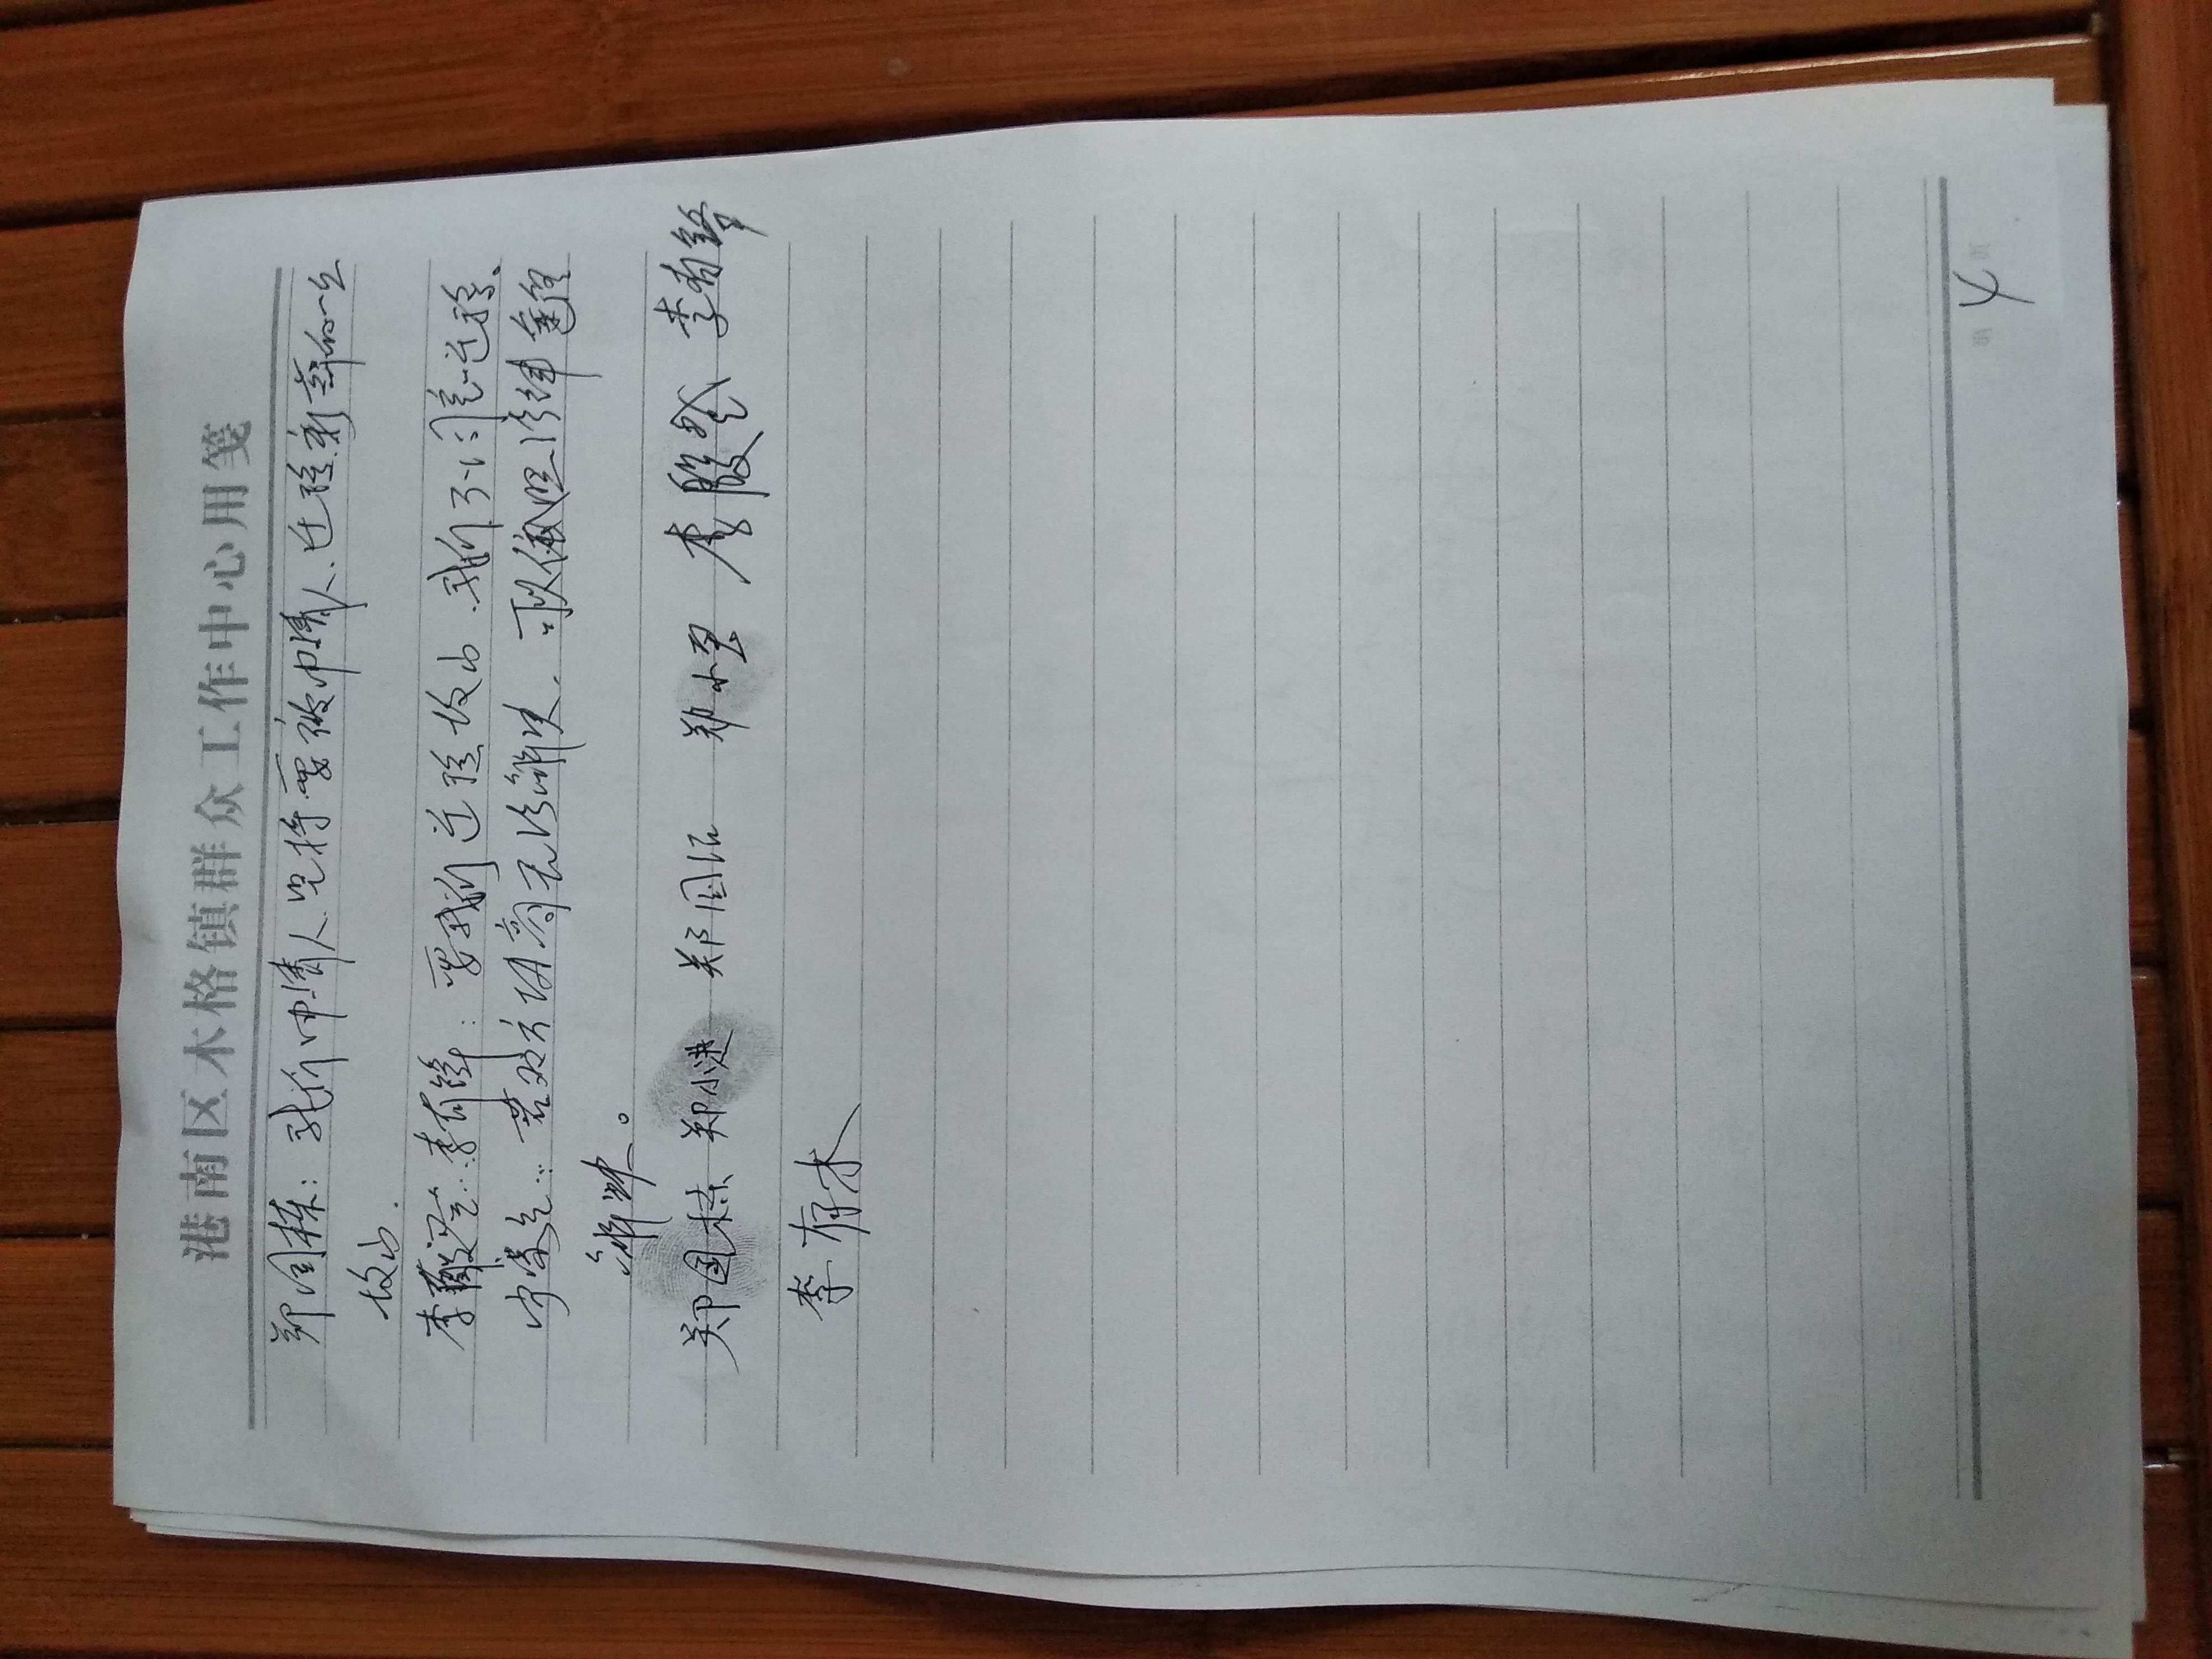 港南区木格镇群众工作中心用笺
郑国栋：我们申请人坚持要被申请人迁移新葬的一座
坟山.
李 李有锋：要我们迁移坟山，我们不同意迁移。
若双方协商无法解决，可以依照法律途径
解决。
郑国栋 郑小进 郑国 郑小 李 李有锋
李有木
第 4 页